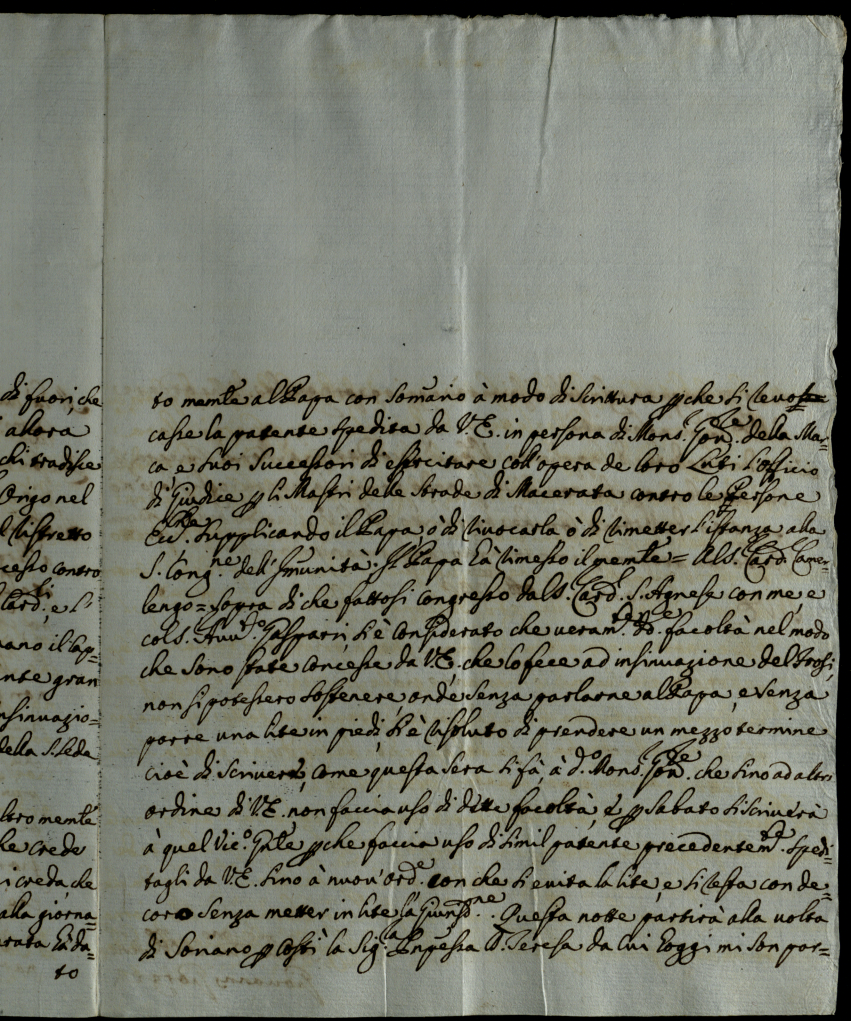 di fuori, che
allora
chi tradisce
Origo nel
Ristretto
cesso contro
Card.li, e l'
mano il Cap=
nte gran
nsinuazio=
della S. Sede
ltro memle
he crede
i creda, che
alla giorna=
rata hà da=
to
to memle al Papa con Somario à modo di Scrittura p che si revo
casse la patente spedita da V.E. in persona di Mons. Gov.re della Mar=
ca e suoi Successori di esercitare coll'opera de loro Luti l'officio
di Giudice p li Mastri delle Strade di Macerata contro le Persone
Eccl.che supplicando il Papa ò di rivocarla ò di rimetter l'istanza alla
S. Cong.ne dell'Immunità. Il Papa hà rimesso il memle = Al S. Card. Camer=
lengo = sopra di che fattosi congresso dal S. Card. S. Agnese con me, e
col S. Avv.o Gasparri, si è considerato che veram.te d.e facoltà nel modo
che sono state concesse da V.E. che lo fece ad insinuazione del Brosi,
non si potessero sostenere, onde senza parlarne al Papa, e senza
porre una lite in piedi, si è risoluto di prendere un mezzo termine
cioè di scrivere, come questa sera si fà, à d.o Mons. Gov.re che sino ad altr
ordine di V.E. non faccia uso di dette facoltà, e p sabato si scriverà
à quel Vic.o Gnle p che faccia uso di simil patente precedentem.te spedi=
tagli da V.E. sino à nuov'ord.e con che si evita la lite, e si resta con de=
coro senza metter in lite la Giurisd.ne. Questa notte partirà alla volta
di Soriano p costì la Sig.ra Pnpessa D. Teresa da cui hoggi mi son por=